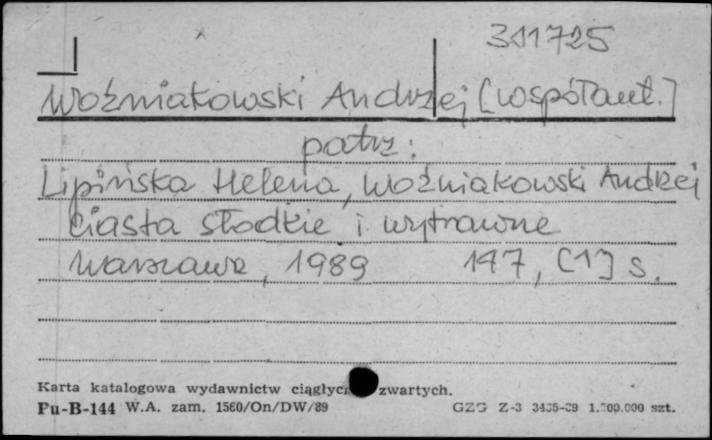 311725
Woźniakowski Andrzej [współaut.]
patrz:
Lipińska Helena, Woźniakowski Andrzej
Ciasta słodkie i wytrawne
Warszawa, 1989 147, [1] s.
Karta katalogowa wydawnictw zwartych.
Pu-B-144 W.A. zam. 1560/On/DW/89 GZG Z-3 szt.